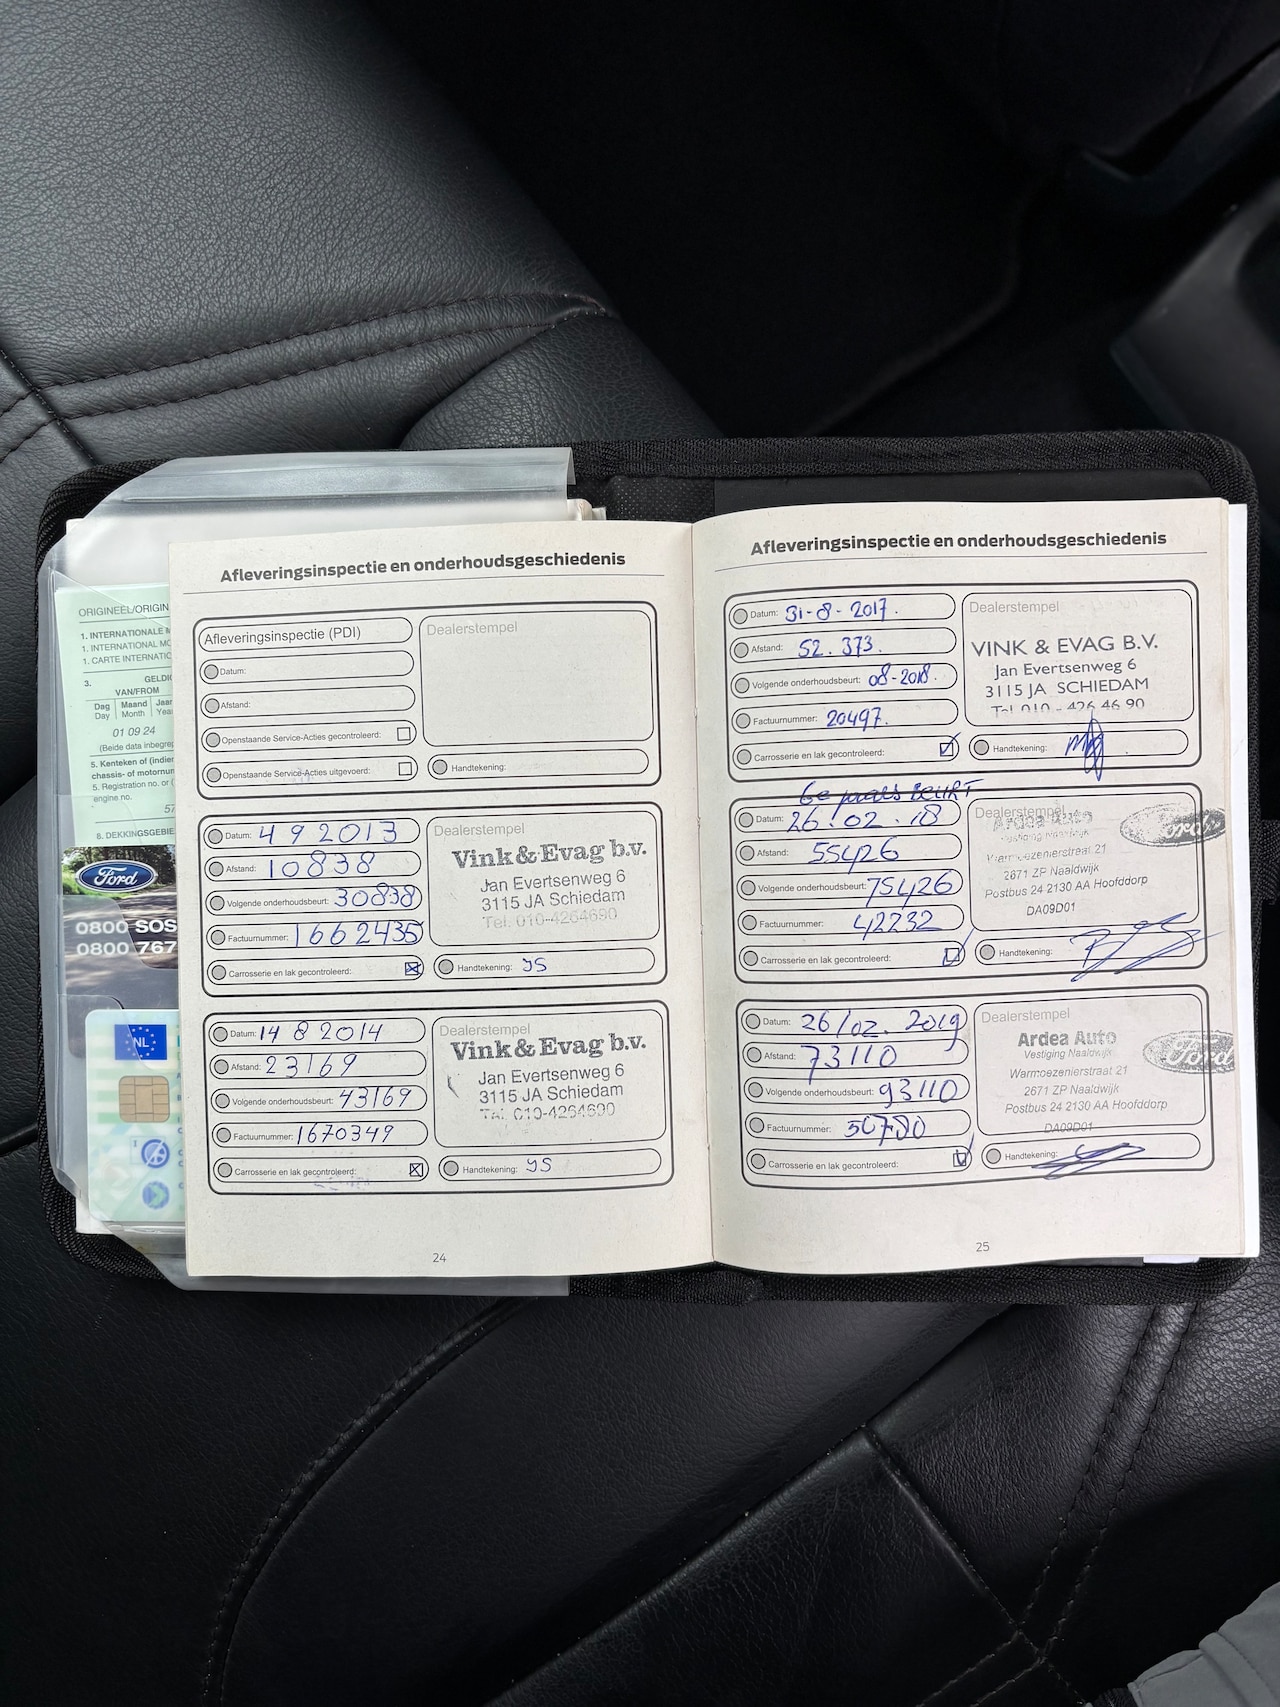 ORIGINEEL/ORIGIN
1. INTERNATIONALE M
1. INTERNATIONAL MO
1. CARTE INTERNATIO
3.
GELDI
VAN/FROM
Dag Maand Jaar
Day Month Yea
01 09 24
(Beide data inbegrep
5. Kenteken of (indien
chassis- of motornum
5. Registration no. or (
engine no.
57
8. DEKKINGSGEBIE
Ford
0800 SOS
0800 767
NL
Afleveringsinspectie en onderhoudsgeschiedenis
Afleveringsinspectie (PDI)
Dealerstempel
Datum:
Afstand:
Openstaande Service-Acties gecontroleerd:
Openstaande Service-Acties uitgevoerd:
Handtekening:
Datum: 4 9 2013
Afstand: 10838
Volgende onderhoudsbeurt: 30838
Factuurnummer: 1662435
Carrosserie en lak gecontroleerd:
Dealerstempel
Vink & Evag b.v.
Jan Evertsenweg 6
3115 JA Schiedam
Tel. 010-4264690
Handtekening: JS
Datum: 14 8 2014
Afstand: 23169
Volgende onderhoudsbeurt: 43169
Factuurnummer: 1670349
Carrosserie en lak gecontroleerd:
Dealerstempel
Vink & Evag b.v.
Jan Evertsenweg 6
3115 JA Schiedam
Tel. 010-4264690
Handtekening: JS
24
Afleveringsinspectie en onderhoudsgeschiedenis
Datum: 31-8-2017.
Afstand: 52.373.
Volgende onderhoudsbeurt: 08-2018.
Factuurnummer: 20497.
Carrosserie en lak gecontroleerd:
Dealerstempel
VINK & EVAG B.V.
Jan Evertsenweg 6
3115 JA SCHIEDAM
Tel. 010 - 426 46 90
Handtekening:
BEURT
Datum: 26.02.18
Afstand: 55426
Volgende onderhoudsbeurt: 75426
Factuurnummer: 42232
Carrosserie en lak gecontroleerd:
Dealerstempel
Ardea Auto
Vestiging Naaldwijk
Warmoezenierstraat 21
2671 ZP Naaldwijk
Postbus 24 2130 AA Hoofddorp
DA09D01
Ford
Handtekening:
Datum: 26/02.2019
Afstand: 73110
Volgende onderhoudsbeurt: 93110
Factuurnummer: 50780
Carrosserie en lak gecontroleerd:
Dealerstempel
Ardea Auto
Vestiging Naaldwijk
Warmoezenierstraat 21
2671 ZP Naaldwijk
Postbus 24 2130 AA Hoofddorp
DA09D01
Ford
Handtekening:
25